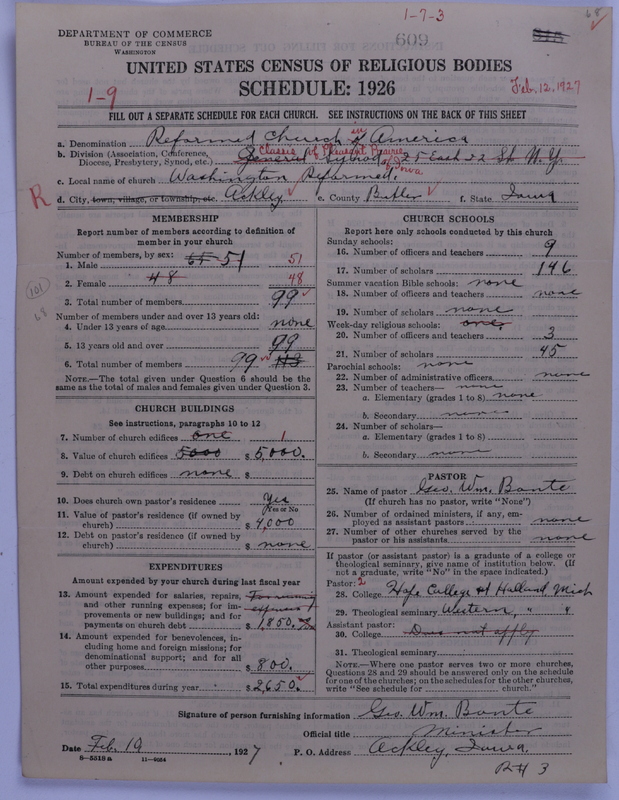 1-7-3
68
DEPARTMENT OF COMMERCE
BUREAU OF THE CENSUS
WASHINGTON
609
UNITED STATES CENSUS OF RELIGIOUS BODIES
SCHEDULE: 1926
1-9
Feb. 12, 1927
FILL OUT A SEPARATE SCHEDULE FOR EACH CHURCH. SEE INSTRUCTIONS ON THE BACK OF THIS SHEET
a. Denomination Reformed Church in America
b. Division (Association, Conference, Diocese, Presbytery, Synod, etc.) General Synod 25 East 22 St. N.Y.
Classis of Pleasant Prairie of Iowa
c. Local name of church Washington Reformed
R
d. City, town, village, or township, etc. Ackley e. County Butler f. State Iowa
MEMBERSHIP
Report number of members according to definition of member in your church
Number of members, by sex:
1. Male 51 51
2. Female 48 48
3. Total number of members 99
Number of members under and over 13 years old:
4. Under 13 years of age none
5. 13 years old and over 99
6. Total number of members 99 113
NOTE.—The total given under Question 6 should be the same as the total of males and females given under Question 3.
101
68
CHURCH BUILDINGS
See instructions, paragraphs 10 to 12
7. Number of church edifices one 1
8. Value of church edifices 5000 $ 5,000.
9. Debt on church edifices none $
10. Does church own pastor's residence Yes
Yes or No
11. Value of pastor's residence (if owned by church) $ 4,000
12. Debt on pastor's residence (if owned by church) $ none
EXPENDITURES
Amount expended by your church during last fiscal year
13. Amount expended for salaries, repairs, and other running expenses; for improvements or new buildings; and for payments on church debt For running expenses $ 1,850.
14. Amount expended for benevolences, including home and foreign missions; for denominational support; and for all other purposes $ 800.
15. Total expenditures during year $ 2,650.
CHURCH SCHOOLS
Report here only schools conducted by this church
Sunday schools:
16. Number of officers and teachers 9
17. Number of scholars 146
Summer vacation Bible schools: none
18. Number of officers and teachers none
19. Number of scholars none
Week-day religious schools: one
20. Number of officers and teachers 3
21. Number of scholars 45
Parochial schools: none
22. Number of administrative officers none
23. Number of teachers— none
a. Elementary (grades 1 to 8) none
b. Secondary none
24. Number of scholars—
a. Elementary (grades 1 to 8)
b. Secondary none
PASTOR
25. Name of pastor Geo. Wm. Bonte
(If church has no pastor, write "None")
26. Number of ordained ministers, if any, employed as assistant pastors none
27. Number of other churches served by the pastor or his assistants none
If pastor (or assistant pastor) is a graduate of a college or theological seminary, give name of institution below. (If not a graduate, write "No" in the space indicated.)
Pastor: 2
28. College Hope College at Holland, Mich
29. Theological seminary Western, " "
Assistant pastor:
30. College Does not apply
31. Theological seminary
NOTE.—Where one pastor serves two or more churches, Questions 28 and 29 should be answered only on the schedule for one of the churches; on the schedules for the other churches, write "See schedule for ______ church."
Signature of person furnishing information Geo. Wm. Bonte
Official title Minister
Date Feb. 19, 1927 P. O. Address Ackley, Iowa.
8-5518a 11-9034
RH 3